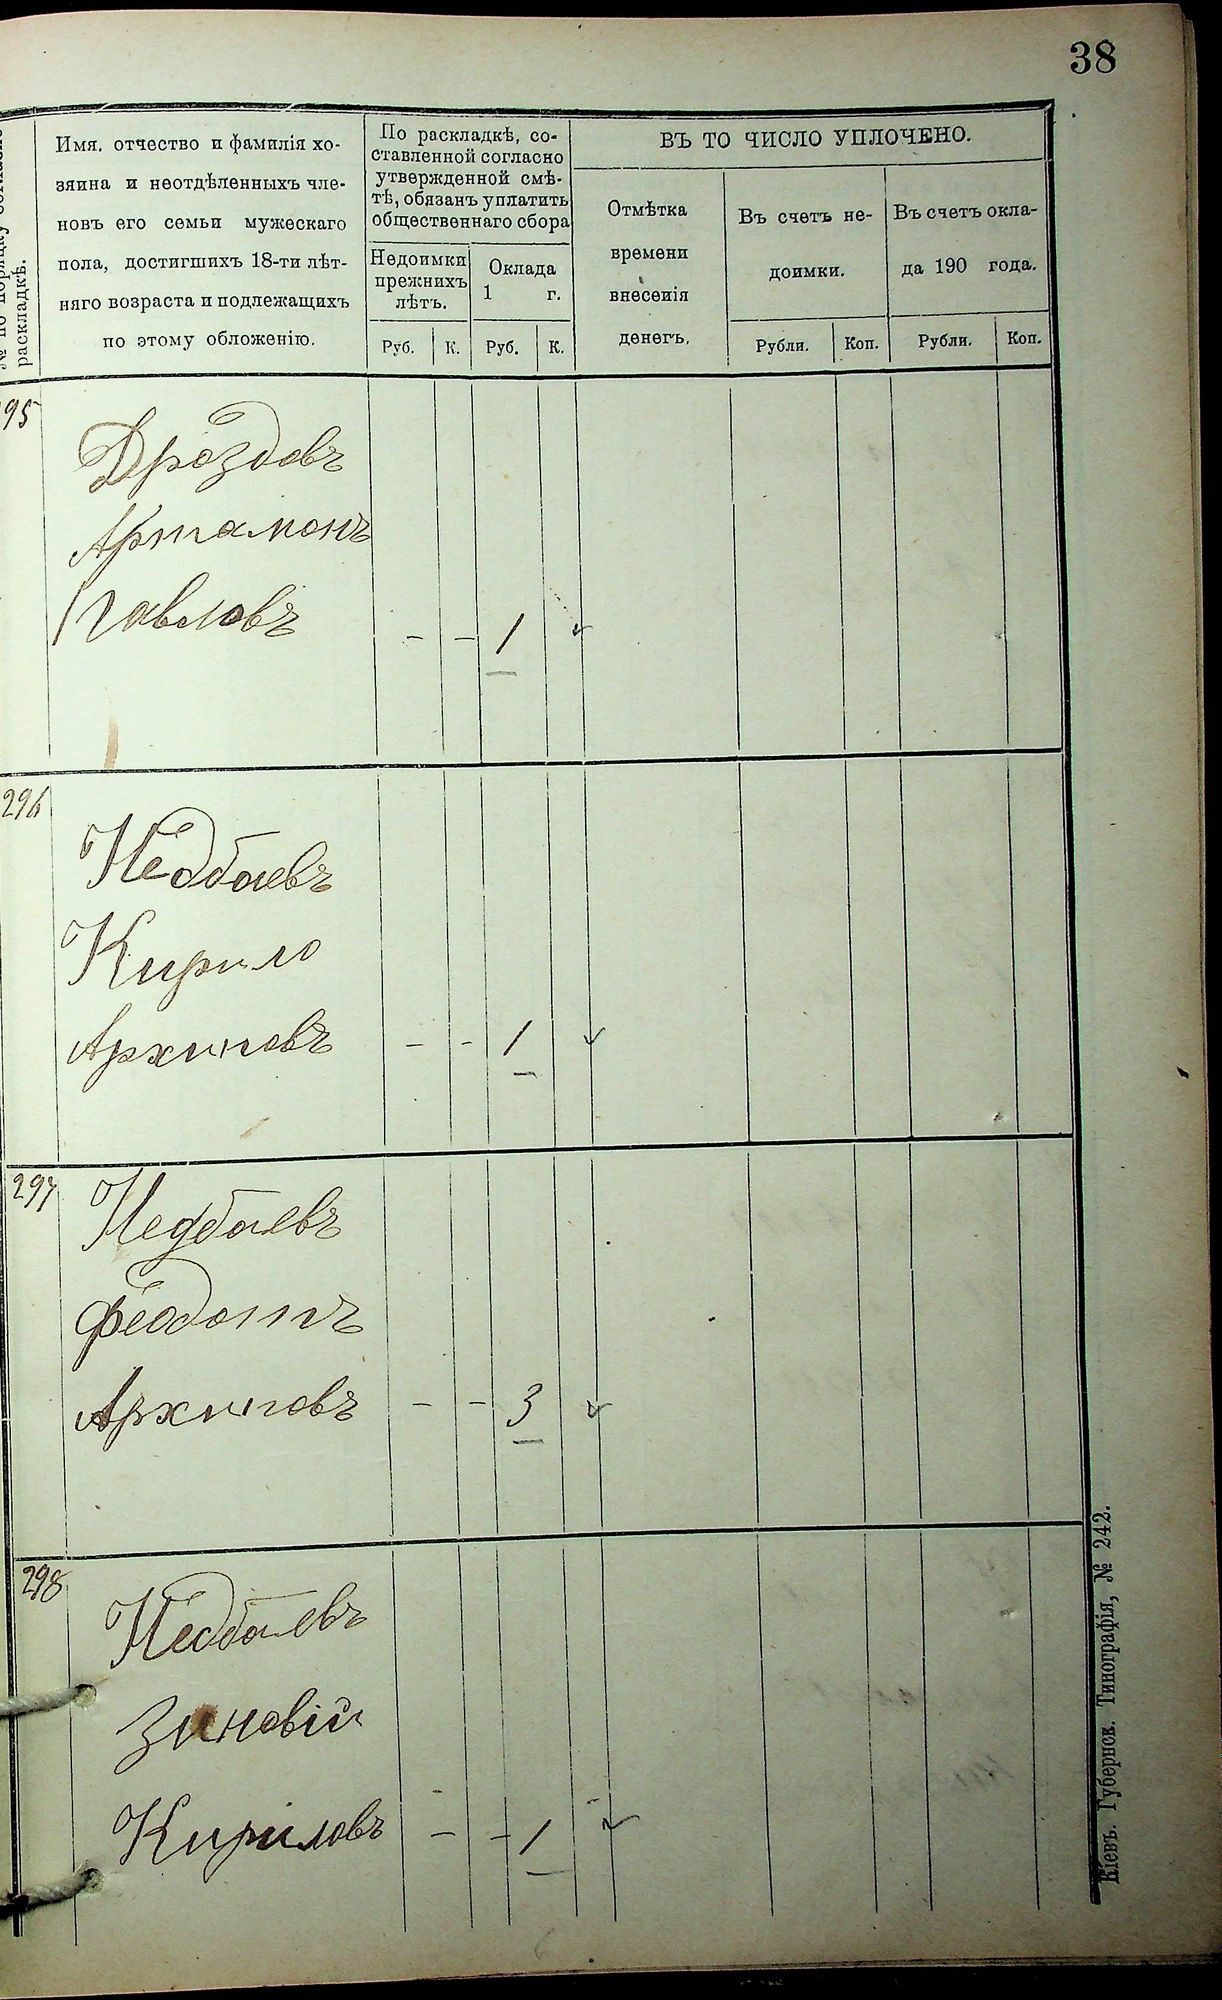 38
раскладкѣ.
Имя, отчество и фамилія хо-
зяина и неотдѣленныхъ чле-
новъ его семьи мужескаго
пола, достигшихъ 18-ти лѣт-
няго возраста и подлежащихъ
по этому обложенію.
По раскладкѣ, со-
ставленной согласно
утвержденной смѣ-
тѣ, обязанъ уплатить
общественнаго сбора
Недоимки
прежнихъ
лѣтъ.
Оклада
1 г.
Руб. К. Руб. К.
ВЪ ТО ЧИСЛО УПЛОЧЕНО.
Отмѣтка
времени
внесенія
денегъ.
Въ счетъ не-
доимки.
Въ счетъ окла-
да 190 года.
Рубли. Коп. Рубли. Коп.
95
Дроздовъ
Артамонъ
Павловъ - - 1
296
Недбаевъ
Кирило
Архиповъ - - 1
297
Недбаевъ
Феодотъ
Архиповъ - - 3
298
Недбаевъ
Зиновій
Кириловъ - - 1
Кіевъ. Губернск. Типографія, № 242.